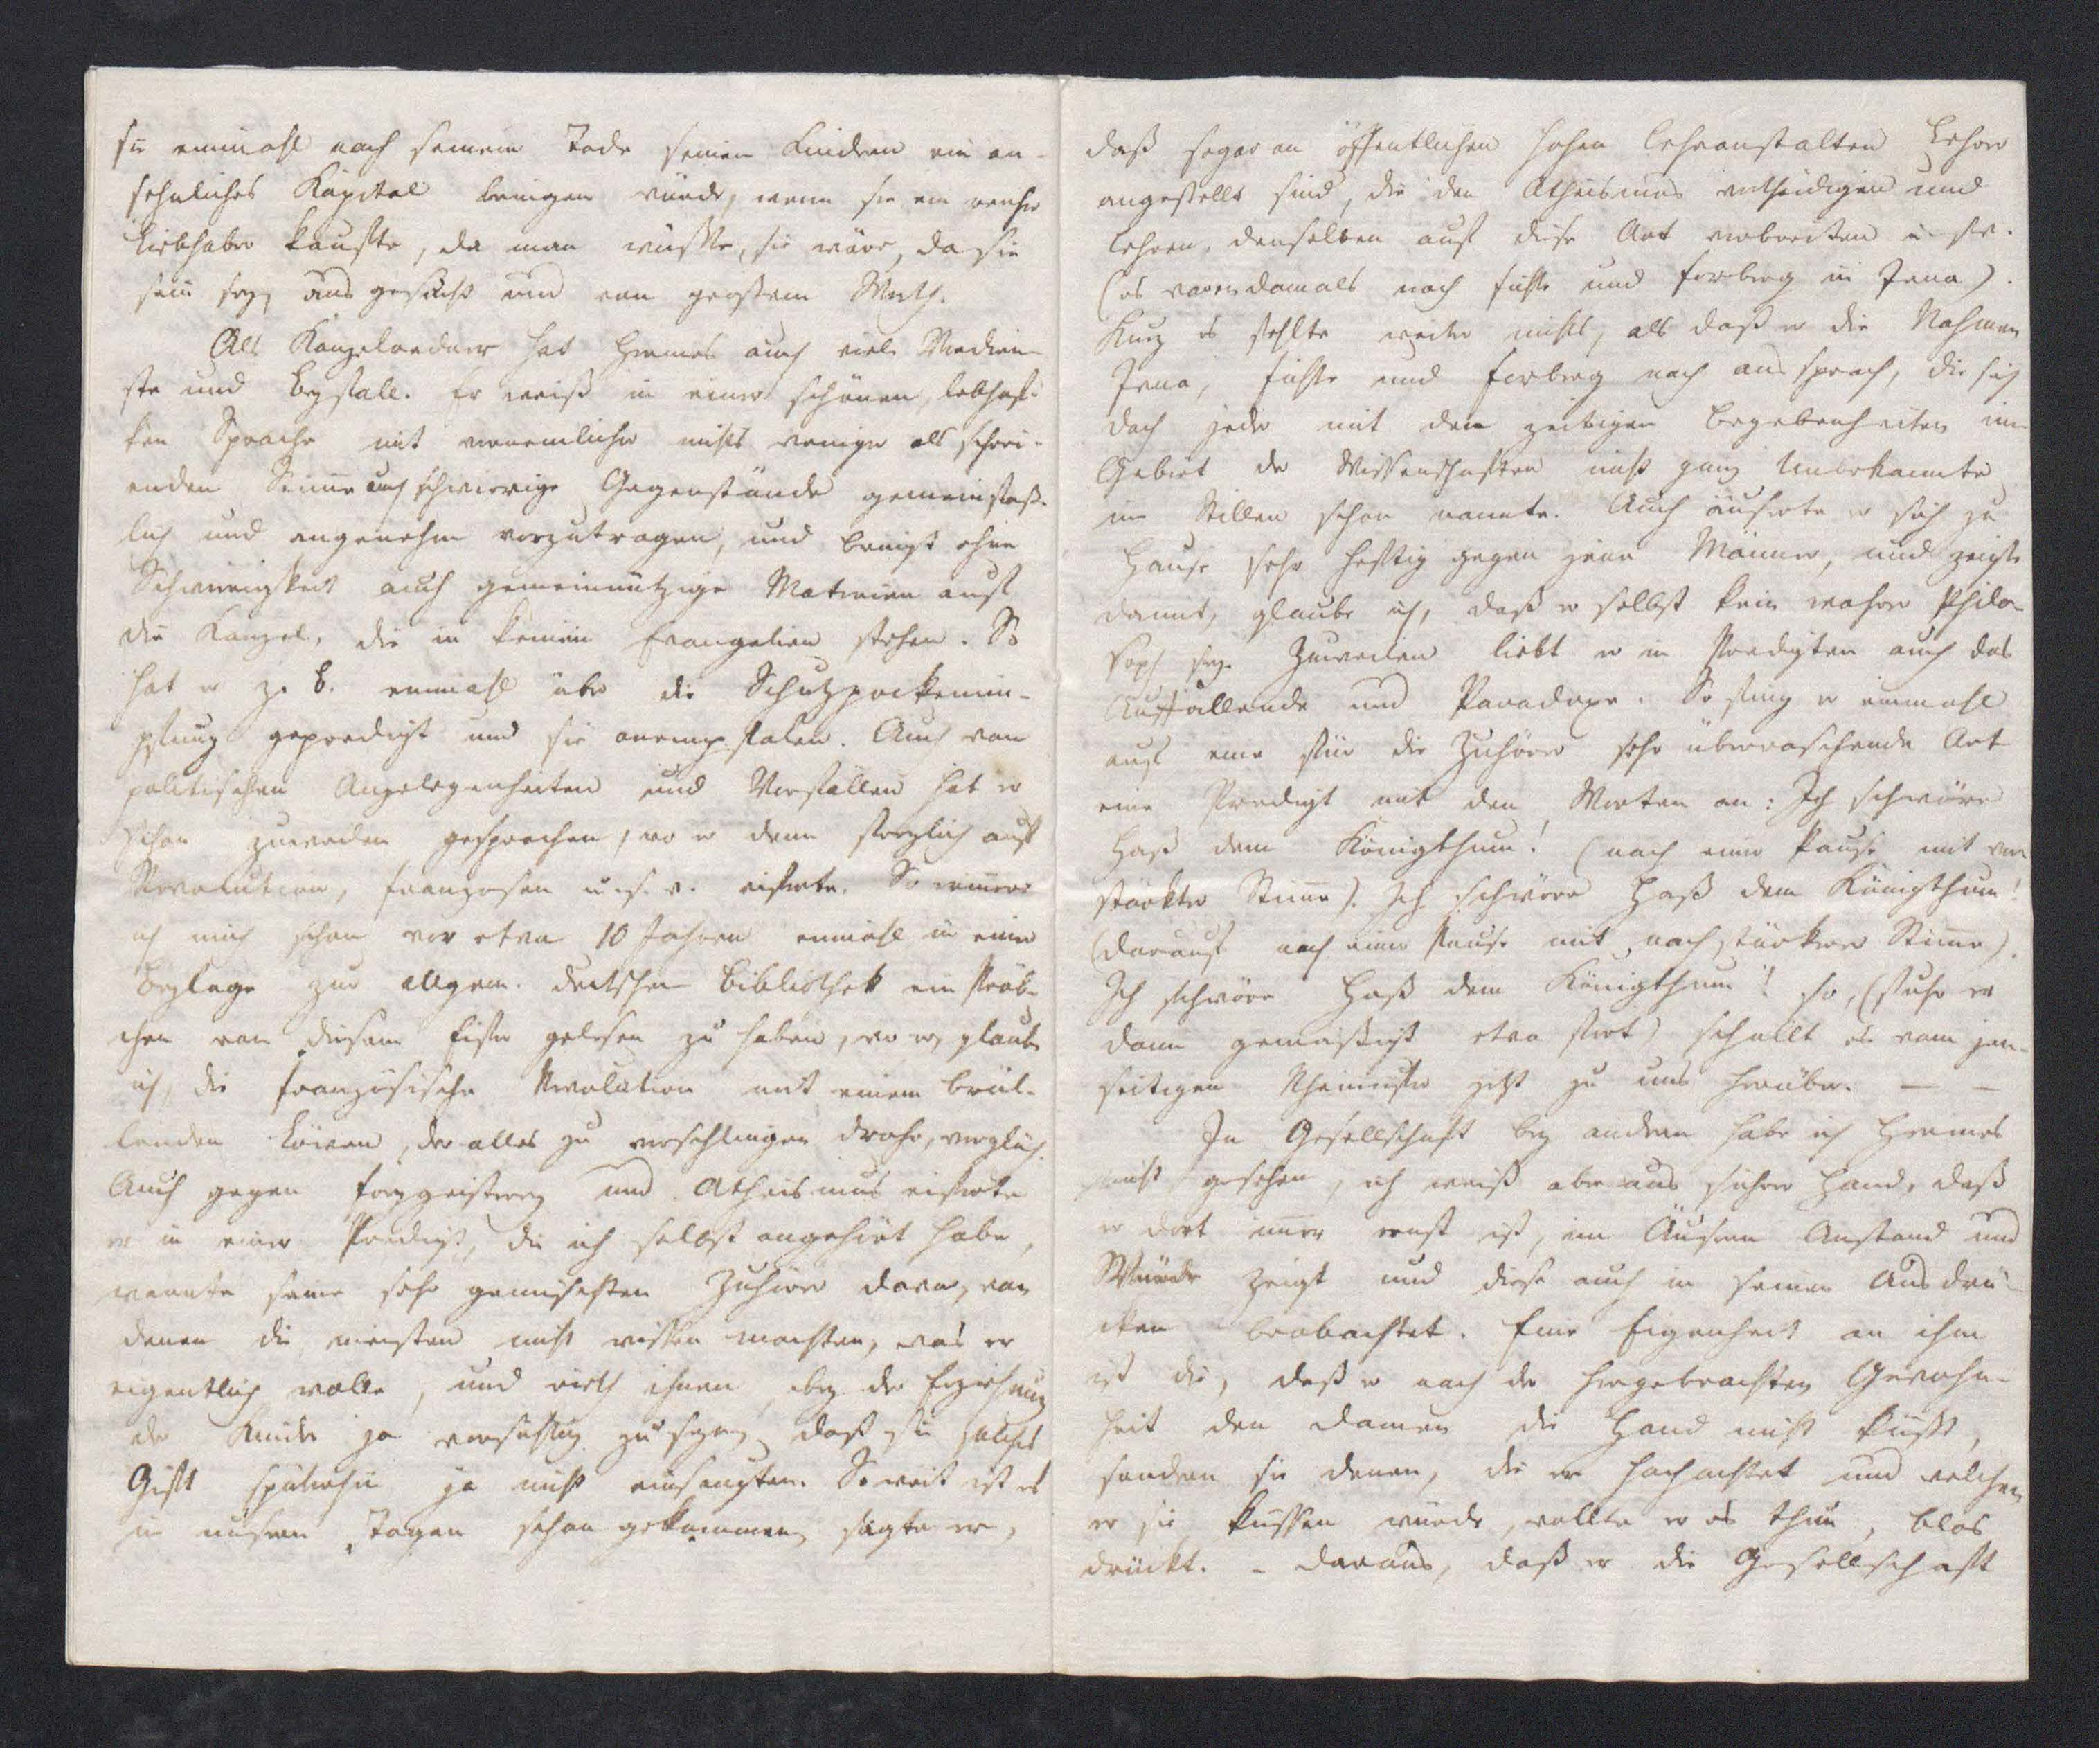 sie einmahl nach seinem Tode seinen Kindern ein an-
sehnliches Kapital bringen würde, wenn sie ein reicher
Liebhaber kaufte, da man wüßte, sie wäre, da sie
sein sey, ausgesucht und von großem Werth.
Als Kanzelredner hat Hermes auch viele Verdien-
ste und Beyfall. Er weiß in einer schönen, lebhaf-
ten Sprache mit vernemlicher nichts weniger als schrei-
enden Stimme auch schwierige Gegenstände gemeinfaß-
lich und angenehm vorzutragen, und bringt ohne
Schwierigkeit auch gemeinnützige Materien auf
die Kanzel, die in keinem Evangelien stehen. So
hat er z. B. einmahl über die Schutzpockenim-
pfung geprediget und sie anempfolen. Auch von
politischen Angelegenheiten und Vorfällen hat er
schon zuweilen gesprochen, wo er denn trefflich auf
Revolution, Franzosen u. s. w. eiferte. So erinnere
ich mich schon vor etwa 10 Jahren einmahl in einer
Beylage zur allgem. deutschen Bibliothek ein Pröb-
chen von diesem Eifer gelesen zu haben, wo er, glaube
ich, die französische Revolution mit einem brül-
lenden Löwen, der alles zu verschlingen drohe, verglich.
Auch gegen Freygeisterey und Atheismus eiferte
er in einer Predigt, die ich selbst angehört habe,
warnte seine sehr gemischten Zuhörer davor, von
denen die meisten nicht wissen mochten, was er
eigentlich wolle, und rieth ihnen, bey der Erziehung
der Kinder ja vorsichtig zu seyn, daß sie solches
Gift späterhin ja nicht einsaugten. So weit ist es
in unsern Tagen schon gekommen, sagte er,
daß sogar an öffentlichen hohen Lehranstalten Lehrer
angestellt sind, die den Atheismus vertheidigen und
lehren, denselben auf diese Art verbreiten u. s. w.
(es waren damals noch Fichte und Forberg in Jena).
Kurz es fehlte weiter nichts, als daß er die Nahmen
Jena, Fichte und Forberg noch aussprach, die sich
doch jeder mit den zeitigen Begebenheiten im
Gebiet der Wissenschaften nicht ganz Unbekannte
im Stillen schon nannte. Auch äuserte er sich zu
Hause sehr heftig gegen jene Männer, und zeigte
damit, glaube ich, daß er selbst kein wahrer Philo-
soph sey. Zuweilen liebt er in Predigten auch das
Auffallende und Paradoxe. So fing er einmahl
auf eine für die Zuhörer sehr überraschende Art
eine Predigt mit den Worten an: Ich schwöre
Haß dem Königthum! (nach einer Pause mit ver-
stärkter Stimme). Ich schwöre Haß dem Königthum!
(darauf nach einer Pause mit noch stärkerer Stimme).
Ich schwöre Haß dem Königthum! so, (fuhr er
dann gemäßigt etwa fort) schallt es vom jen-
seitigen Rheinufer jetzt zu uns herüber. — —
In Gesellschaft bey andern habe ich Hermes
nicht gesehen, ich weiß aber aus sichrer Hand, daß
er dort immer ernst ist, im Äusern Anstand und
Würde zeigt und diese auch in seinen Ausdrü-
cken beobachtet. Eine Eigenheit an ihm
ist die, daß er nach der hergebrachten Gewohn-
heit den Damen die Hand nicht küßt,
sondern sie denen, die er hochachtet und welchen
er sie küssen würde, wollte er es thun, blos
drückt. - Daraus, daß er die Gesellschaft